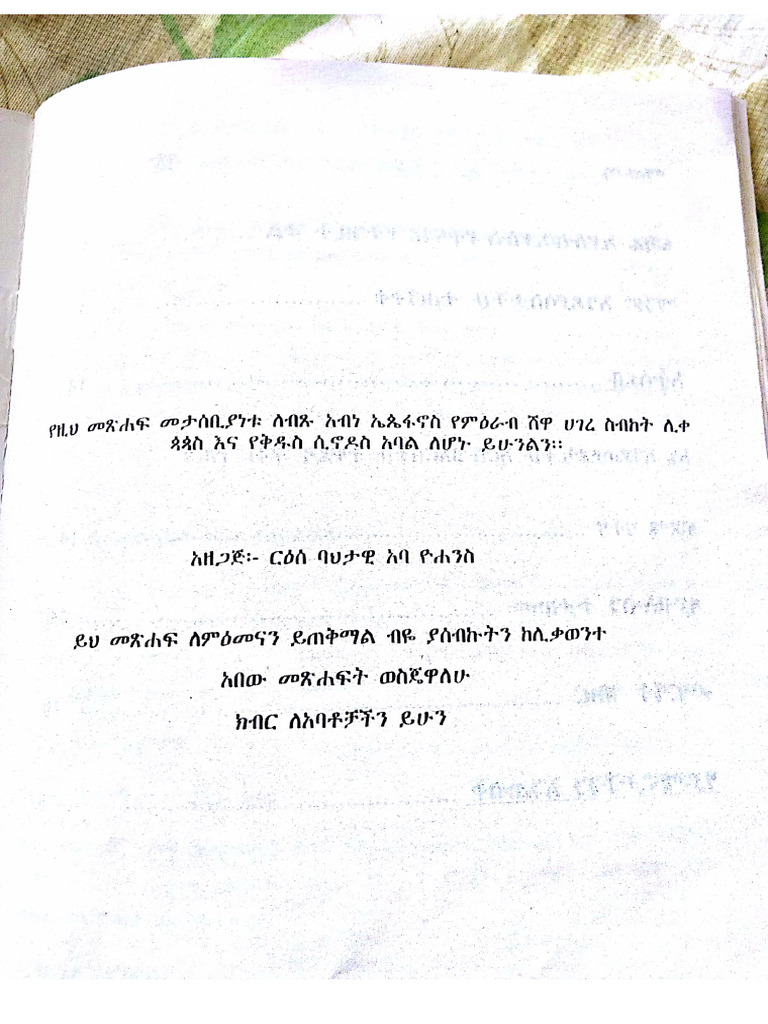 የዚህ መጽሐፍ መታሰቢያነቱ ለብጹ አብነ ኤጴፋኖስ የምዕራብ ሸዋ ሀገረ ስብከት ሊቀ
ጳጳስ እና የቅዱስ ሲኖዶስ አባል ለሆኑ ይሁንልን፡፡
አዘጋጅ፡- ርዕሰ ባህታዊ አባ ዮሐንስ
ይህ መጽሐፍ ለምዕመናን ይጠቅማል ብዬ ያሰብኩትን ከሊቃወንተ
አበው መጽሐፍት ወስጄዋለሁ
ክብር ለአባቶቻችን ይሁን